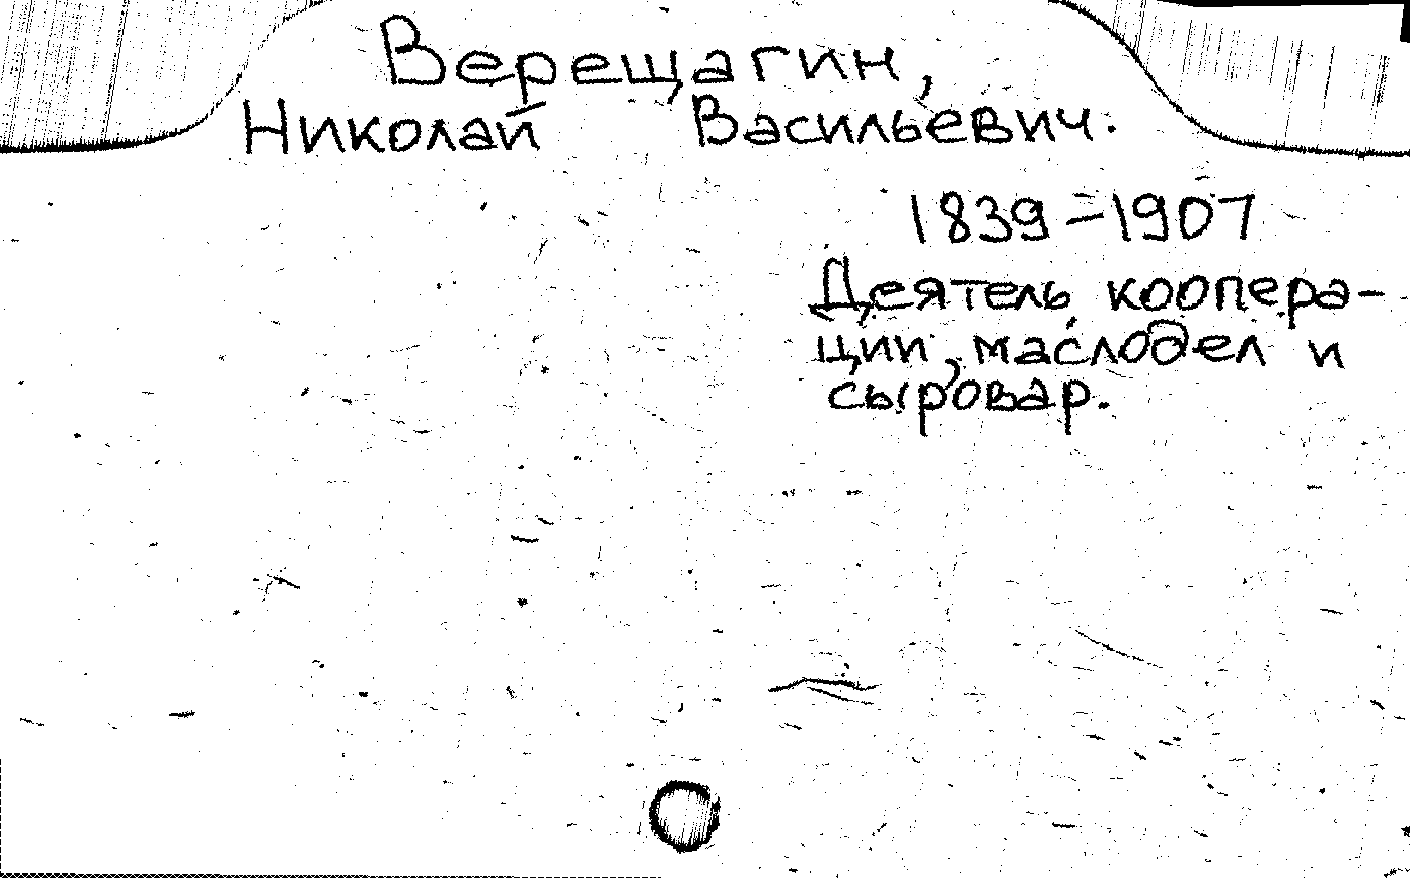 Верещагин,
Николай Васильевич.
1839-1907
Деятель коопера-
ции, маслодел и
сыровар.